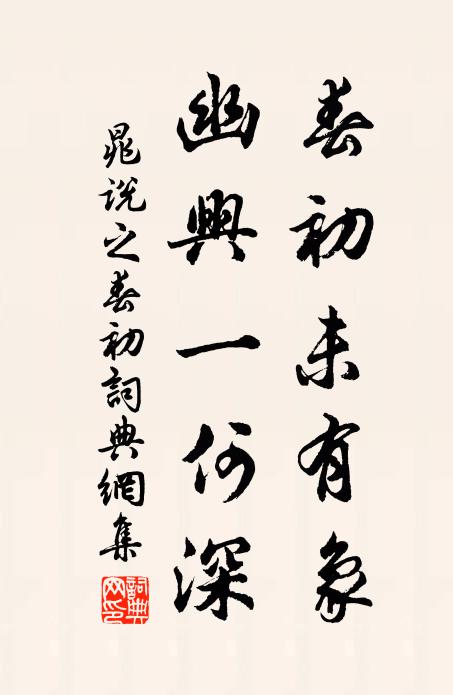 春初未有象
幽興一何深
晁說之春初詞典網集
詞典网印